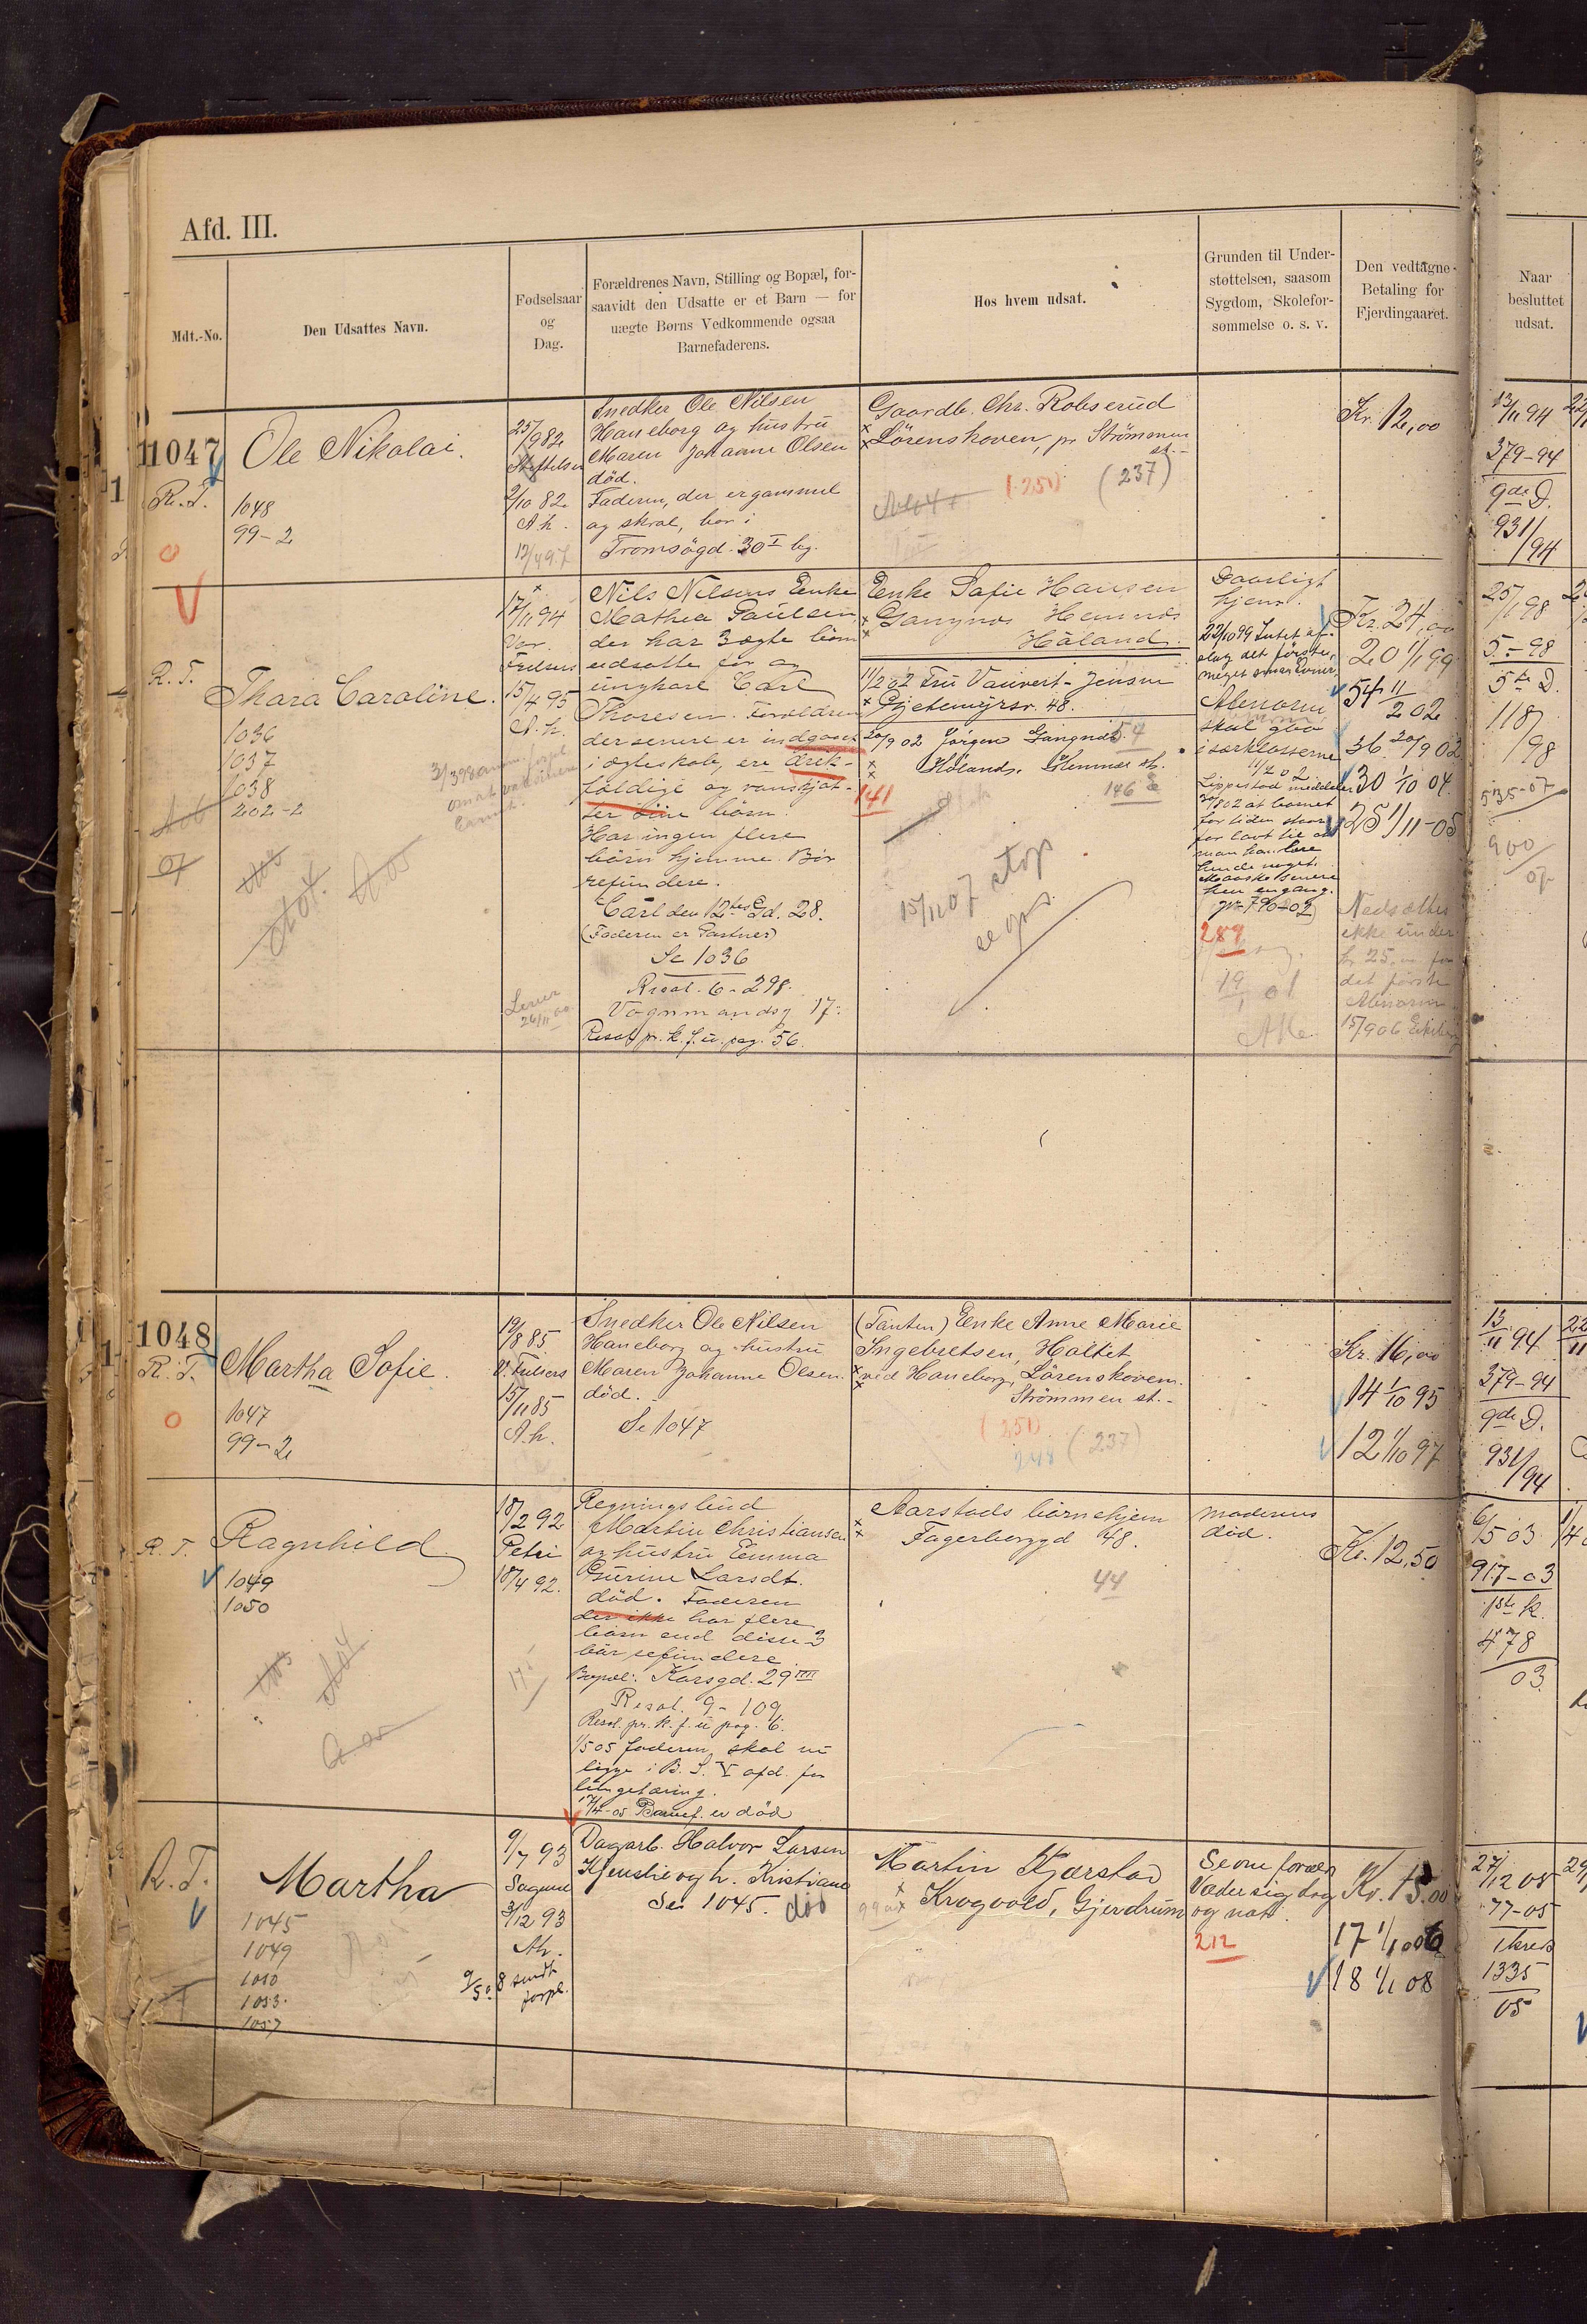 Afd. III.
Mdt.-No.
Den Udsattes Navn.
Fødselsaar
og
Dag.
Forældrenes Navn, Stilling og Bopæl, for-
saavidt den Udsatte er et Barn — for
uægte Børns Vedkommende ogsaa
Barnefaderens.
Hos hvem udsat.
Grunden til Under-
støttelsen, saasom
Sygdom, Skolefor-
sømmelse o. s. v.
Den vedtagne
Betaling for
Fjerdingaaret.
Naar
besluttet
udsat.
1047
R. T.
Ole Nikolai.
1048
99-2
25/9 82
2/10 82
A. h.
Snedker Ole Nilsen
Haneborg og hustru
Maren Johanne Olsen
død.
Faderen, der er gammel
og skral, bor i
Tromsøgd. 30 I bg.
Gaardb. Chr. Robserud
Lörenskoven, pr Strömmen
st.-
(251)
(237)
Kr. 12,00
13/11 94
379-94
9de D.
931/94
R. T.
Thara Caroline.
1036
1037
1038
202-2
17/11 94
Vor
Frelsers
15/4 95
A. h.
Nils Nilsens Enke
Mathea Paulsen
der har 3 ægte börn
udsatte for og
ungkarl Carl
Thoresen. Foreldrene
der senere er indgaaet
i ægteskab, ere drik-
fældige og vanskjöt-
ter sine börn.
Har ingen flere
börn hjemme. Bör
refundere.
Carl den 12tes Gd. 28.
(Faderen er Gartner)
Se 1036
Resol. 6-298.
Vognmandsg 17.
Resol pr. k. f. u. pag. 56.
Enke Sofie Hansen
Gangnæs Hemnæs
Höland.
11/2 02 Fru Vauvert-Jensen
Gjetemyrsv. 48.
20/9 02 Jörgen Gangnæs
Hölands. Hemnæs st.
54
141
146
15/11 07 stop
se op
Daarligt
hjem.
22/10 99 Intet af-
slag det förste,
meget
Abnorm
skal gaa
i særklasserne
11/2 02
Lippestad meddeler
30/8 02 at barnet
for tiden staar
for lavt til at
man kan lære
hende noget.
Maaske senere
hen engang.
jr 790-02
289
19/1 01
Kr. 24,00
20 1/1 99
54 11/2 02
36 20/9 02
30 1/10 04
25 1/11-05
Nedsættes
ikke under
kr 25,00 for
det förste
Abnorm
15/9 06
25/1 98
5.-98
5te D.
118/98
535-07
900/07
1048
R. T.
Martha Sofie.
1047
99-2
19/8 85
V. Frelsers
15/11 85
A. h.
Snedker Ole Nilsen
Haneborg og hustru
Maren Johanne Olsen
død.
Se 1047
(Tanten) Enke Anne Marie
Ingebretsen, Holtet
ved Haneborg, Lörenskoven.
Strömmen st.-
(251)
248 (237)
Kr. 16,00
14 1/10 95
12 1/10 97
13/11 94
379-94
9de D.
931/94
R. T.
Ragnhild
1049
1050
18/2 92
Petri
18/4 92.
Regningsbud
Martin Christiansen
og hustru Emma
Gurine Larsdt.
død. Faderen
der ikke har flere
börn end disse 3
bör refundere
Bopæl: Korsgd. 29 III
Resol. 9-109
Resol. pr. k. f. u pag. 6.
1/5 05 faderen skal nu
ligge i B. S. V afd. for
lungetæring.
17/4-05 Barnef. er død
Aarstads börnehjem
Fagerborggd 48.
44
moderens
død.
Kr. 12,50
6/5 03
917-03
1ste k.
478/03
R. T.
Martha
1045
1049
1050
1053.
1057
9/7 93
Sagene
3/12 93
Ah.
9/5 08 sendt
forpl.
Dagarb. Halvor Larsen
Kjenslie og h. Kristiane
Se 1045. død
Martin Kjærstad
Krogvold, Gjerdrum
Se om foræld
Væder sig dag
og nat.
212
Kr. 15.00
17 1/1 006
18 1/1 08
27/12 05
77-05
1 kreds
1335/05